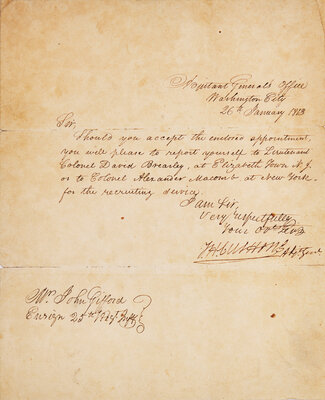 Adjutant General's Office
Washington City
26th January 1813
Sir,
Should you accept the enclosed appointment,
you will please to report yourself to Lieutenant
Colonel David Brearley, at Elizabeth Town N. J.
or to Colonel Alexander Macomb at New York,
for the recruiting service.
I am Sir,
Very respectfully
Your Obt Serv
Mr. John Gifford
Ensign 25th Regt Infy